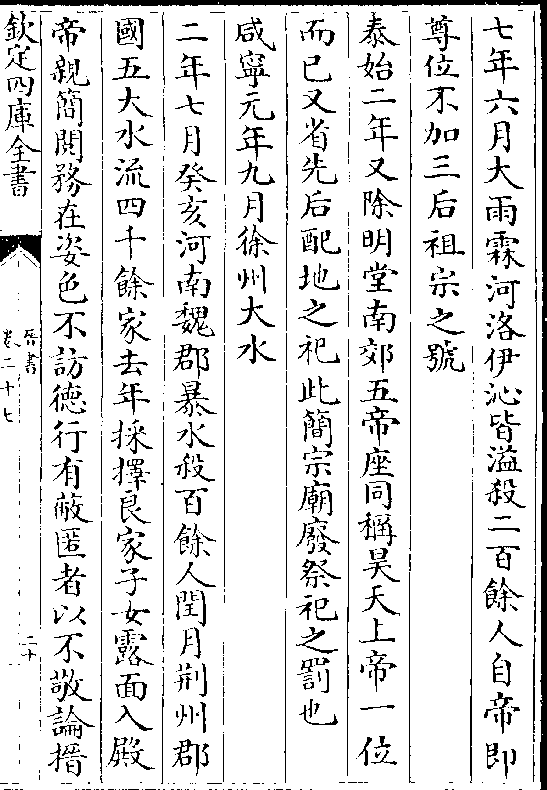 七年六月大雨霖河洛伊沁皆溢殺二百餘人自帝即
尊位不加三后祖宗之號
泰始二年又除明堂南郊五帝座同稱昊天上帝一位
而已又省先后配地之祀此簡宗廟廢祭祀之罰也
咸寧元年九月徐州大水
二年七月癸亥河南魏郡暴水殺百餘人閏月荆州郡
國五大水流四千餘家去年採擇良家子女露面入殿
帝親簡閱務在姿色不訪德行有蔽匿者以不敬論搢
欽定四庫全書
晉書
卷二十七
二十